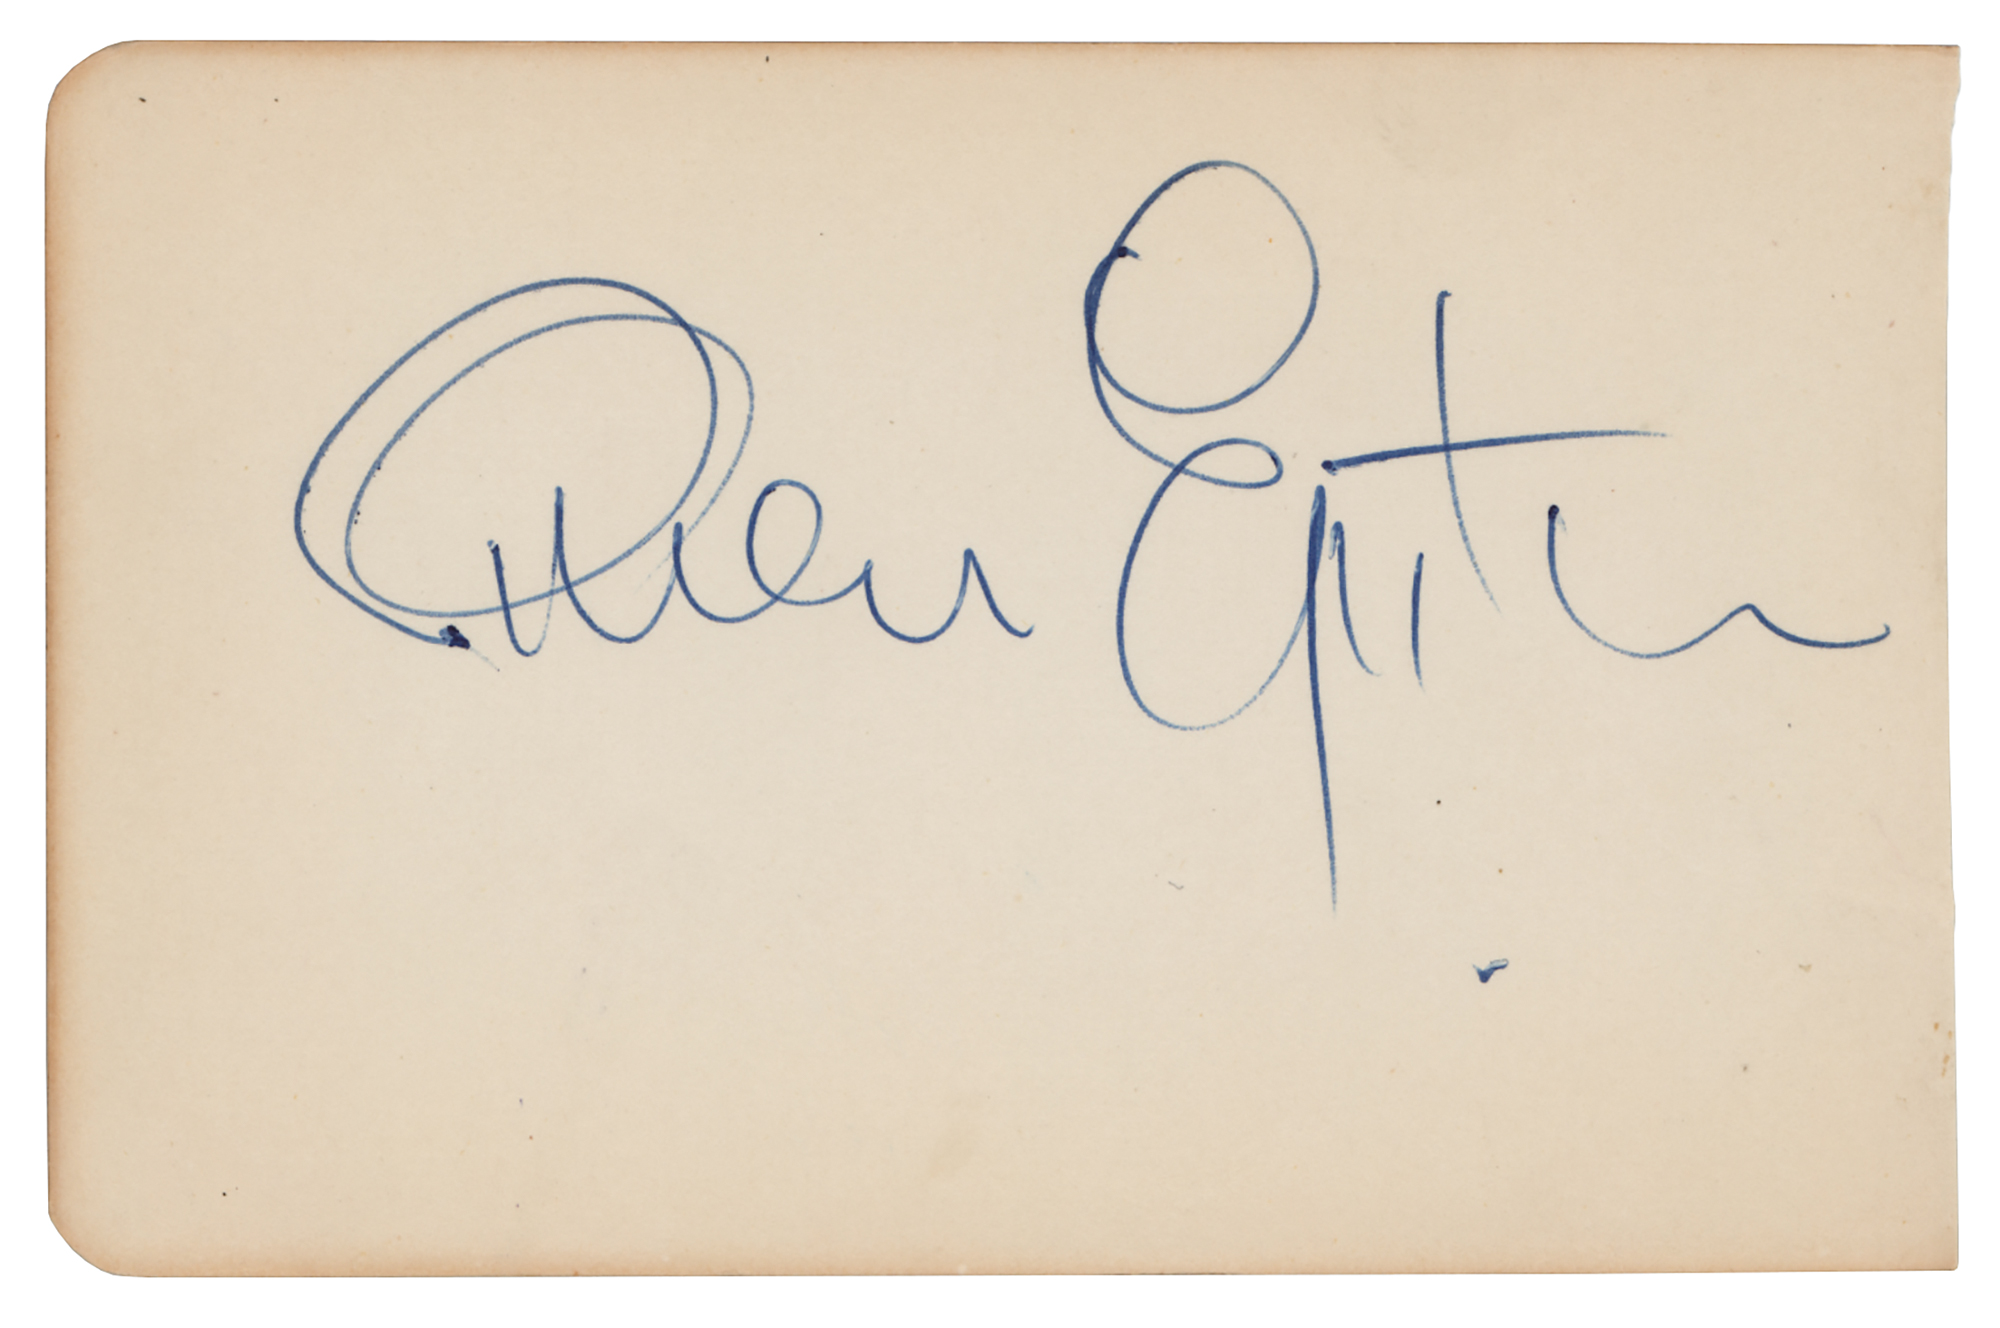 Brian Epstein